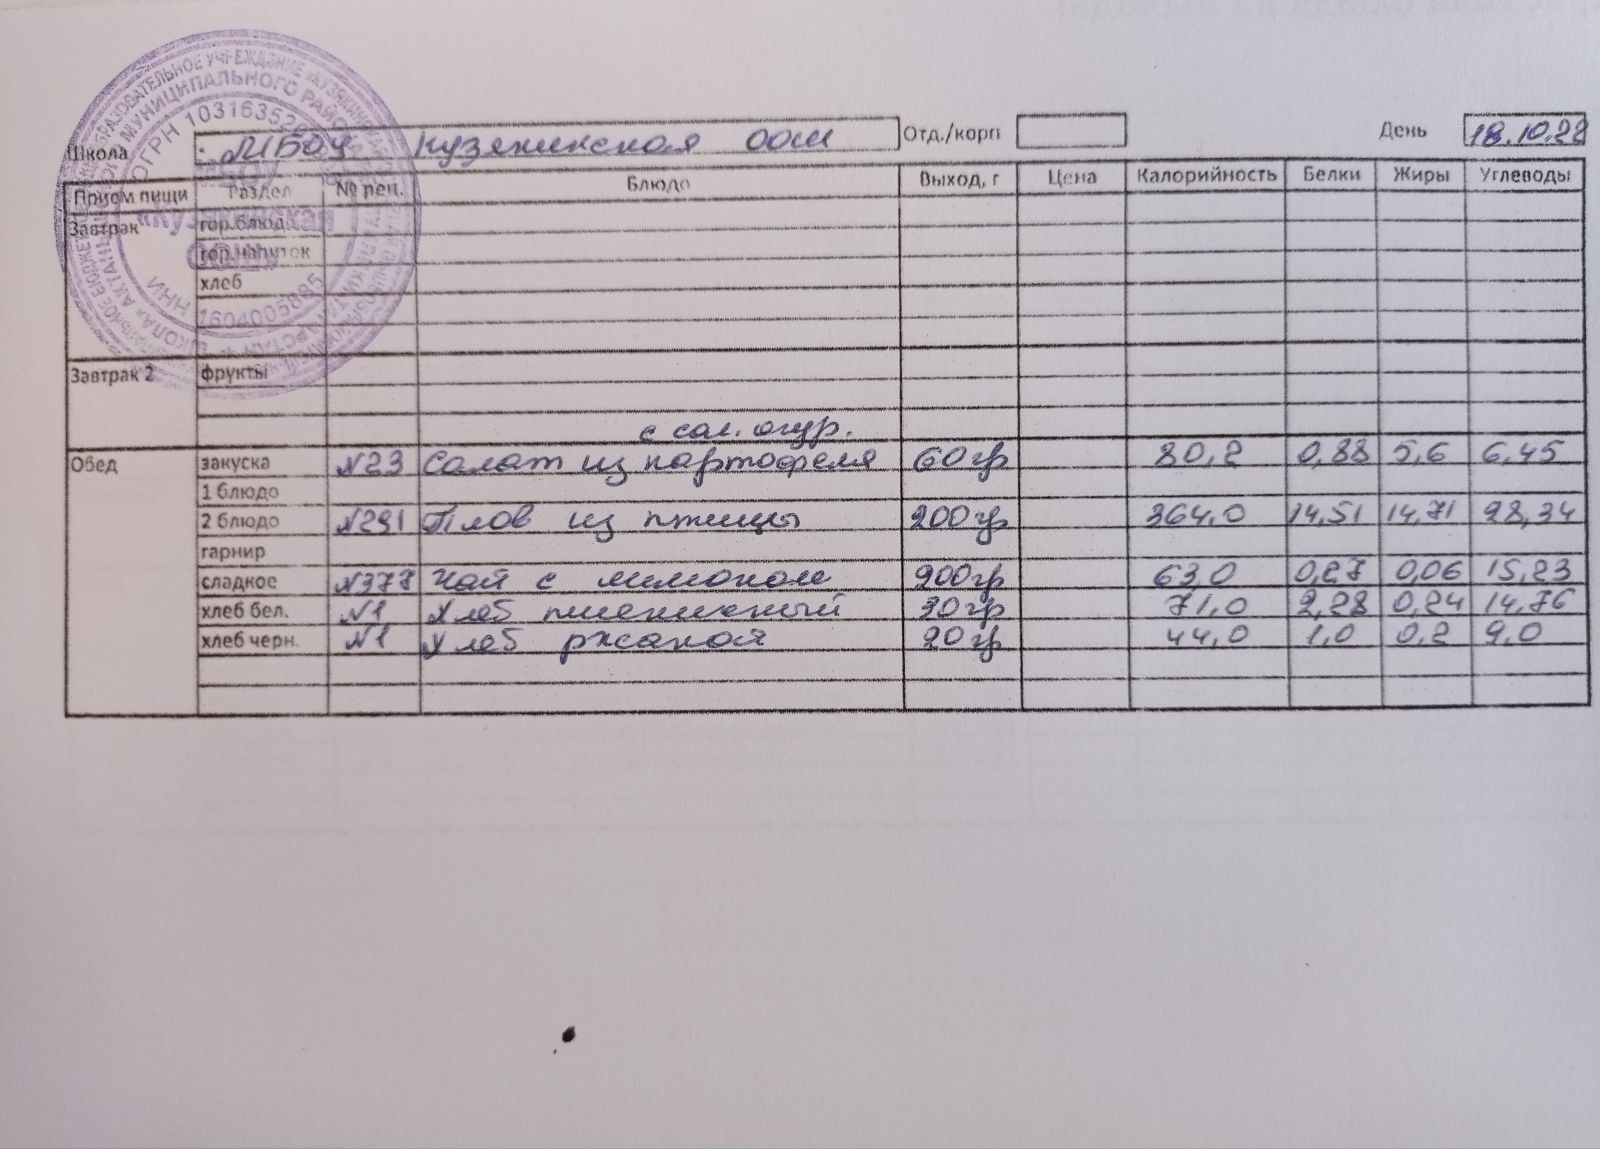 МУНИЦИПАЛЬНОГО РАЙО
ОГРН 103163520
ИНН 1604005895
МБОУ
«Кузякинская
ООШ»
Школа МБОУ Кузякинская ООШ Отд./корп День 18.10.22
Прием пищи Раздел № рец. Блюдо Выход, г Цена Калорийность Белки Жиры Углеводы
Завтрак гор.блюдо
гор.напиток
хлеб
Завтрак 2 фрукты
с сол. огур.
Обед закуска №23 Салат из картофеля 60гр 80,2 0,88 5,6 6,45
1 блюдо
2 блюдо №291 Плов из птицы 200гр 364,0 14,51 14,71 28,34
гарнир
сладкое №377 Чай с лимоном 200гр 63,0 0,27 0,06 15,23
хлеб бел. №1 Хлеб пшеничный 30гр 71,0 2,28 0,24 14,76
хлеб черн. №1 Хлеб ржаной 20гр 44,0 1,0 0,2 9,0